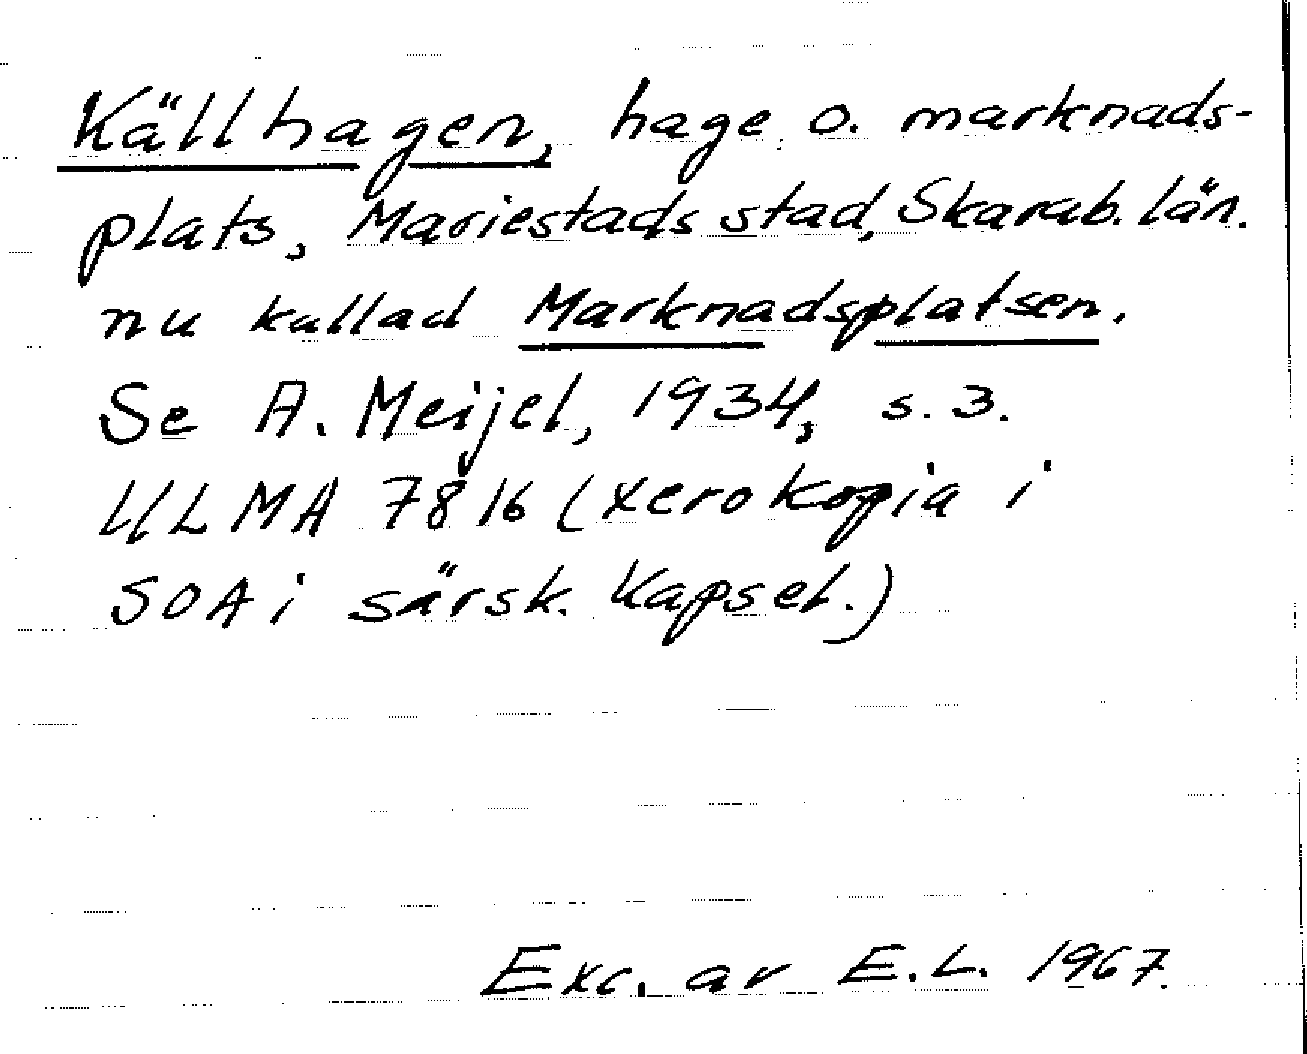 Källhagen, hage o. marknads-
plats, Mariestads stad, Skarab. län.
nu kallad Marknadsplatsen.
Se A. Meijel, 1934, s. 3.
ULMA 7816 (xerokopia i
SOA i särsk. kapsel.)
Exc. av E.L. 1967.